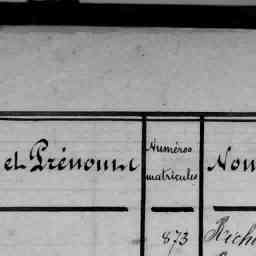 et Prénoms
Numéros
matricules
Nom
873
Rich